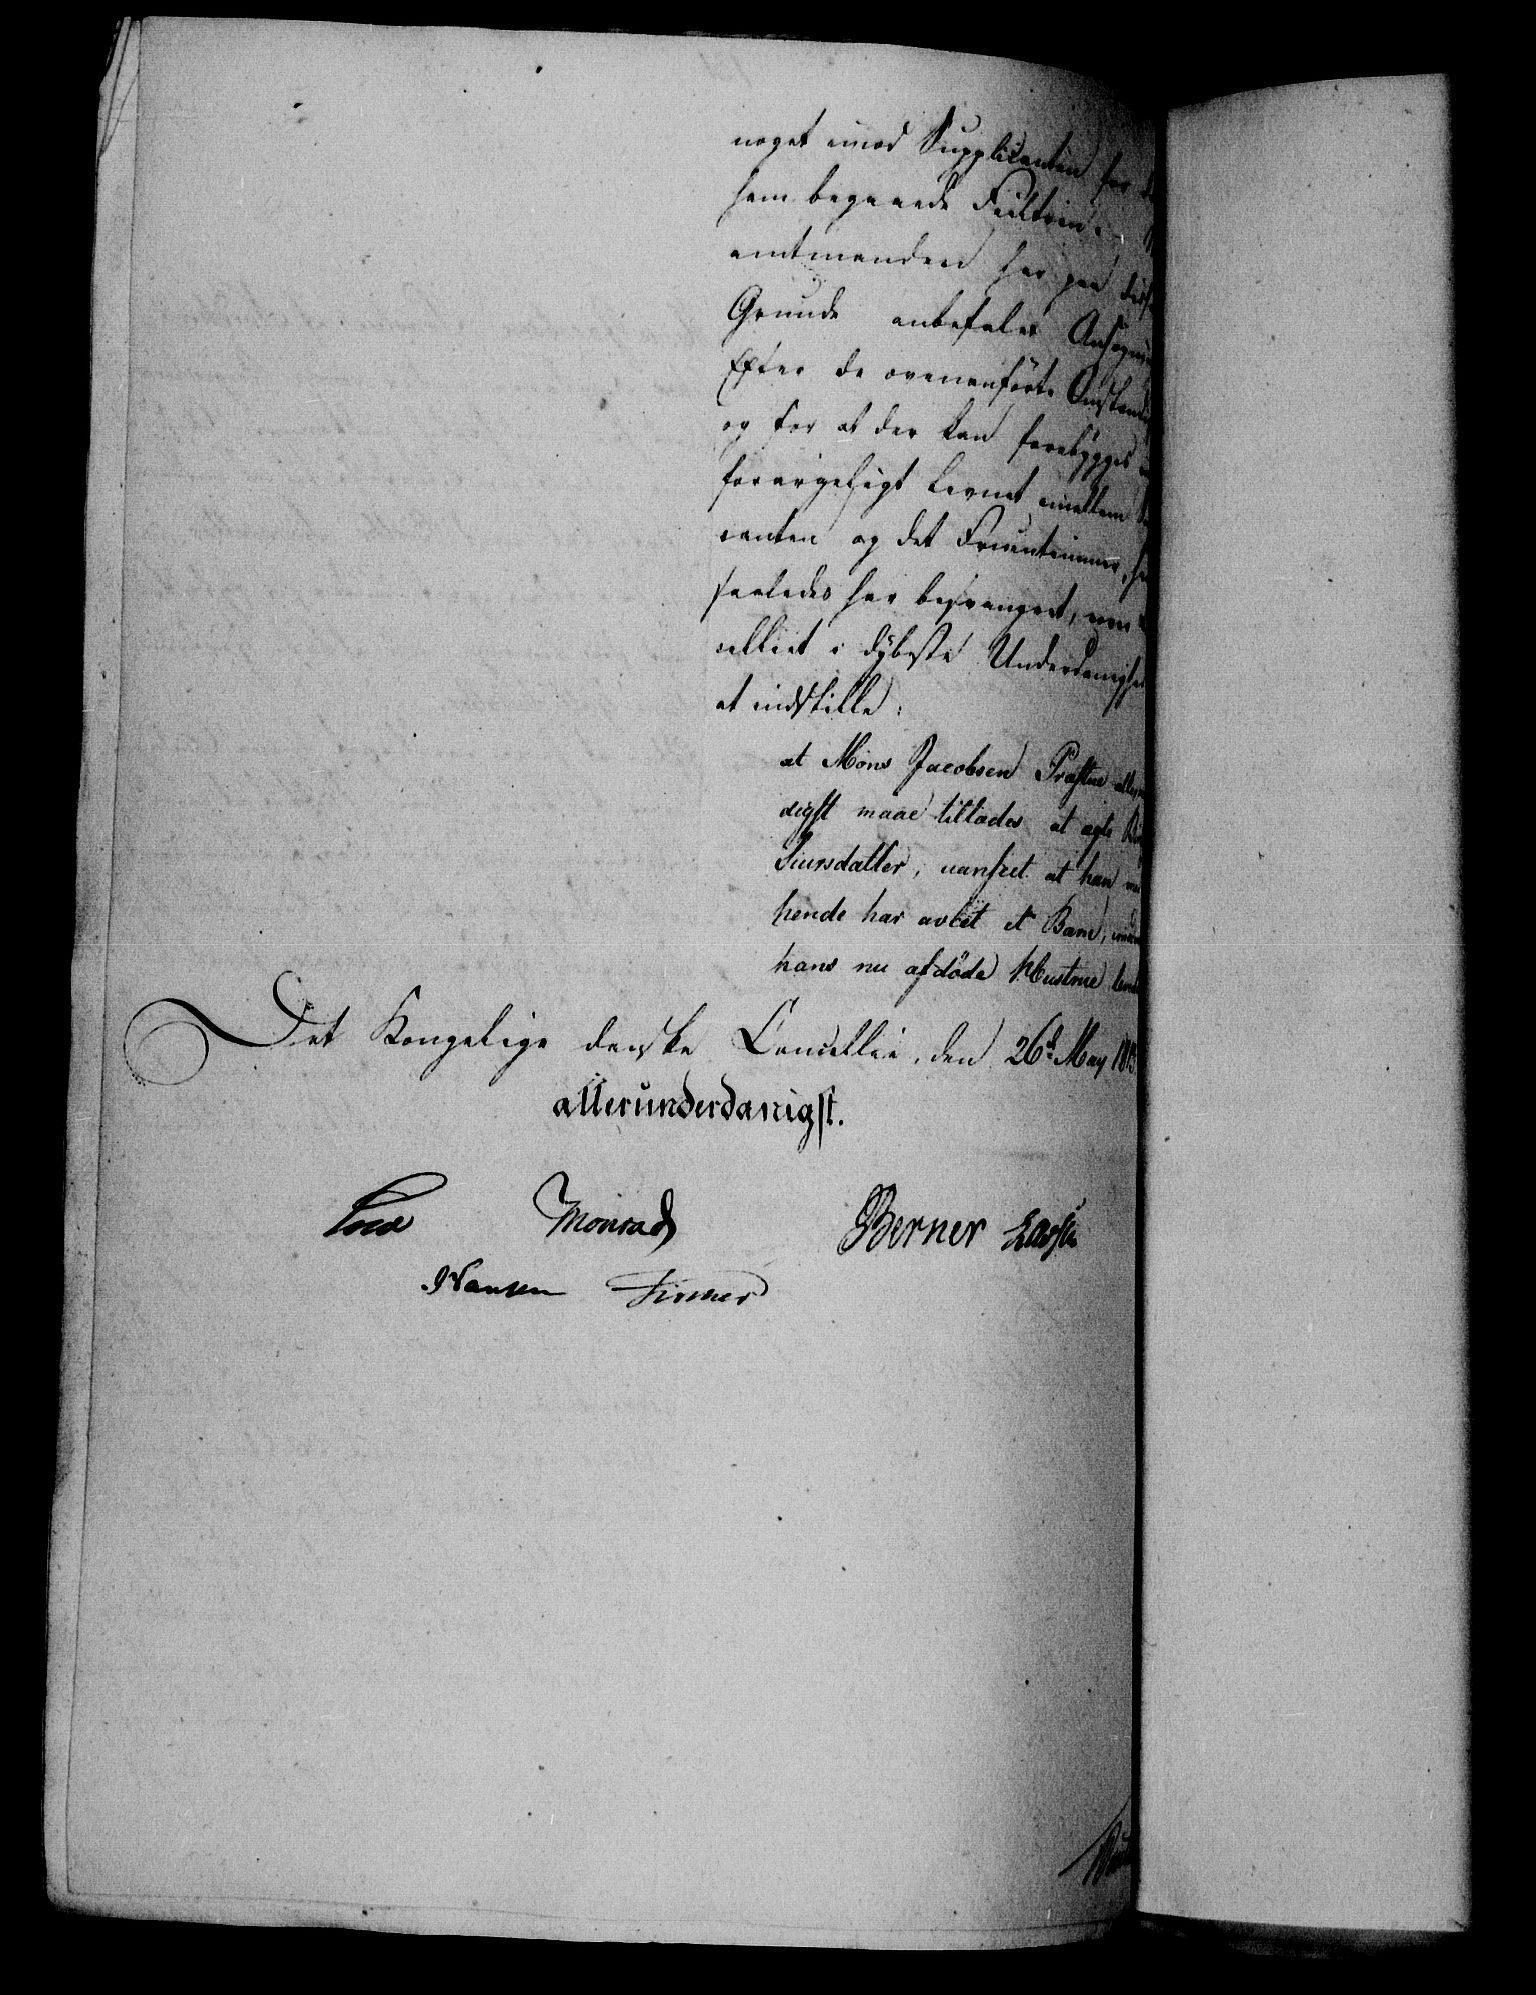 noget imod Supplicanten for
ham begaaede Feiltrin.
amtmanden har paa
Grunde anbefalet Ansøgni
Efter de ovenanførte Omstændig
og for at der kan forebygges
forargeligt Levnet imellem
canten og det Fruentimmer,
saaledes har besvangret,
celliet i dybeste Underdanighe
at indstille:
at Mons Jacobsen Præstue aller
digst maae tillades at ægte
Siursdatter, uanseet at han
hende har avlet et Barn,
hans nu afdøde Hustrue
Det Kongelige danske Cancellie, den 26d May 181
allerunderdanigst.
Monrad Berner
Hansen